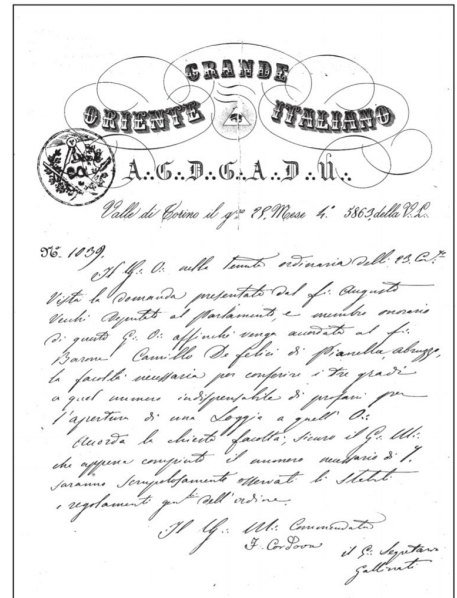 GRANDE
ORIENTE ITALIANO
A∴G∴D∴G∴A∴D∴U∴
Valle di Torino il g.no 25. Mese 4° 5863 della V∴L∴
N° 1039.
Il G∴ O∴ nella Tenuta ordinaria dell 23. Cor.te
Vista la domanda presentata dal f∴ Augusto
Vecchi Deputato al Parlamento, e membro onorario
di questo G∴ O∴ affinchè venga accordato al f∴
Barone Camillo De felici di Pianella Abruzzo,
la facoltà necessaria per conferire i tre gradi
a quel numero indispensabile di profani per
l'apertura di una Loggia a quell' O∴
Accorda la chiesta facoltà, sicuro il G∴ M∴
che appena compiuto il numero necessario di 7.
saranno scrupolosamente osservati li Statuti
e regolamenti dell'ordine.
Il G∴ M∴ Commendatore
F. Cordova
il G∴ Segretario
Gallinati